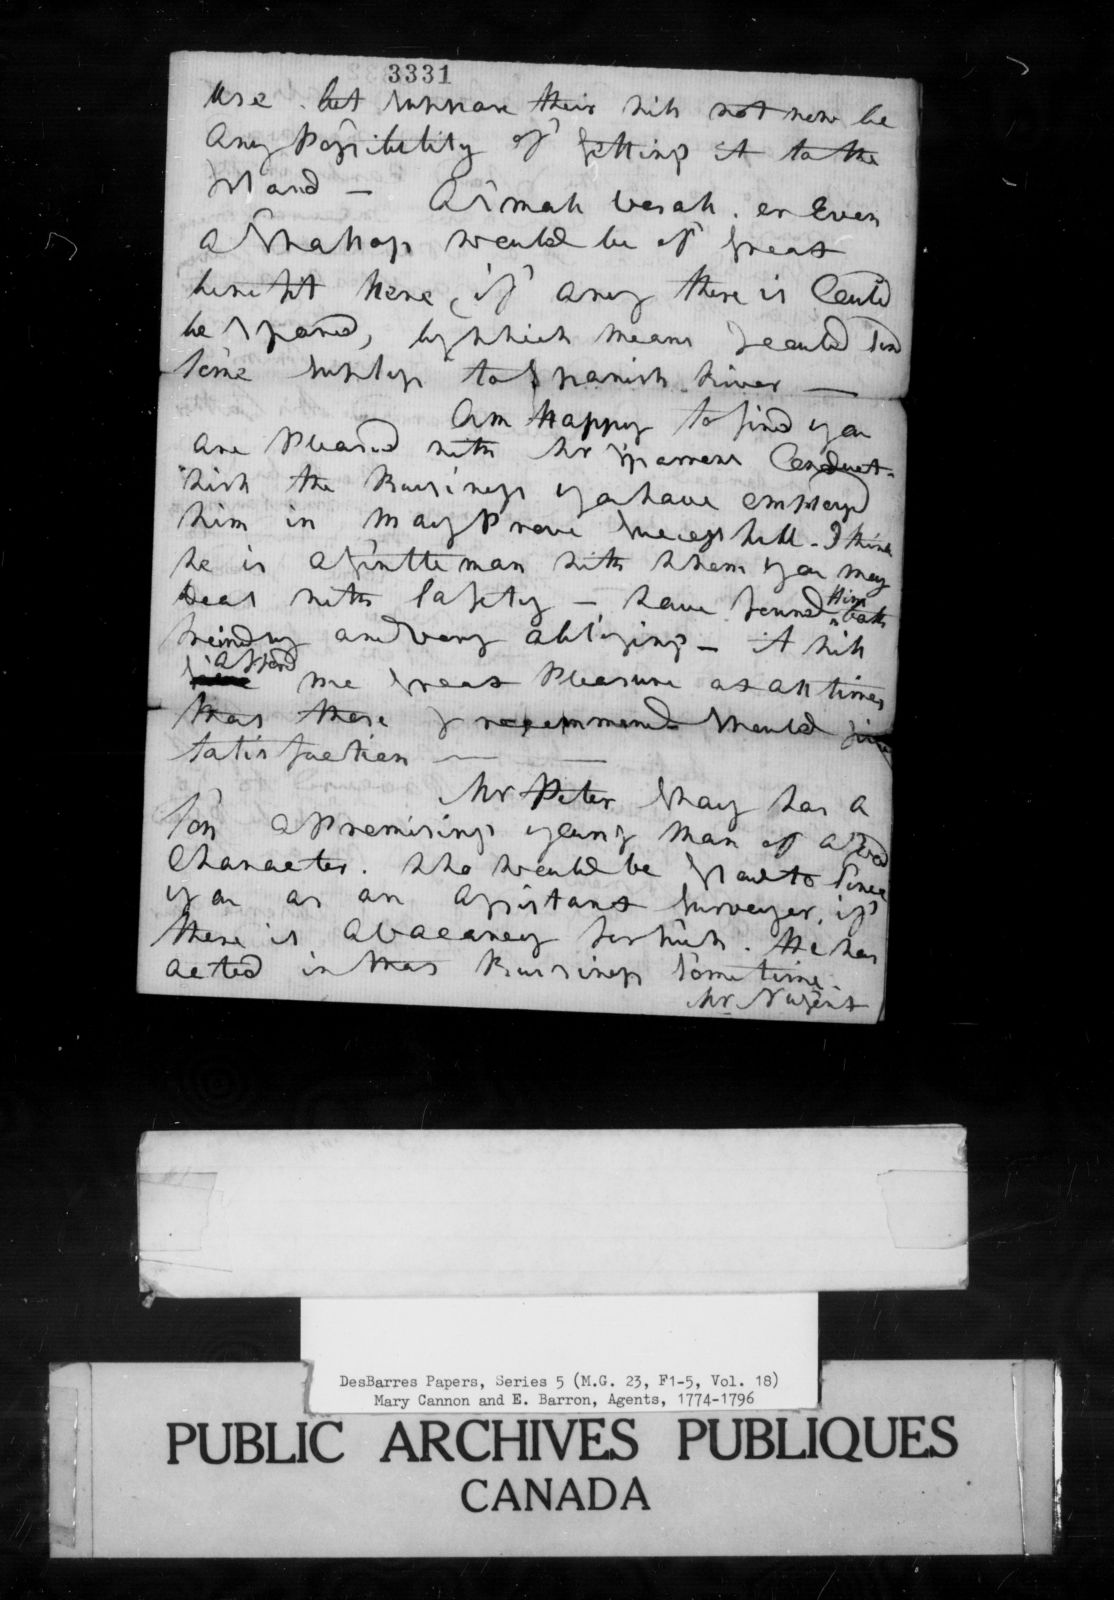 3331
Use. but suppose their will not now be
Any Possibility of getting it to the
Island — A Small vesall. or Even
a Shallop would be of great
benefit here, if any there is Could
be Spared, by which means I could Send
Some Supply to Spanish River —
Am Happy to find you
are Pleased with Mr Conduct.
wish the Bussiness you have employd
him in may Prove Successfull. I think
he is a Gentleman with whom you may
deal with Safety — have found Him both
freindly and very obliging — it will
afford me great Pleasure at all times
that those I recommend Should give
Satisfaction —
Mr Peter has a
Son a Promising young man of a Good
Character. who would be glad to Serve
you as an Assistant Surveyor, if
there is a Vacancy for such. He has
acted in that Bussiness Some time.
Mr Nugent
DesBarres Papers, Series 5 (M.G. 23, F1-5, Vol. 18)
Mary Cannon and E. Barron, Agents, 1774-1796
PUBLIC ARCHIVES PUBLIQUES
CANADA